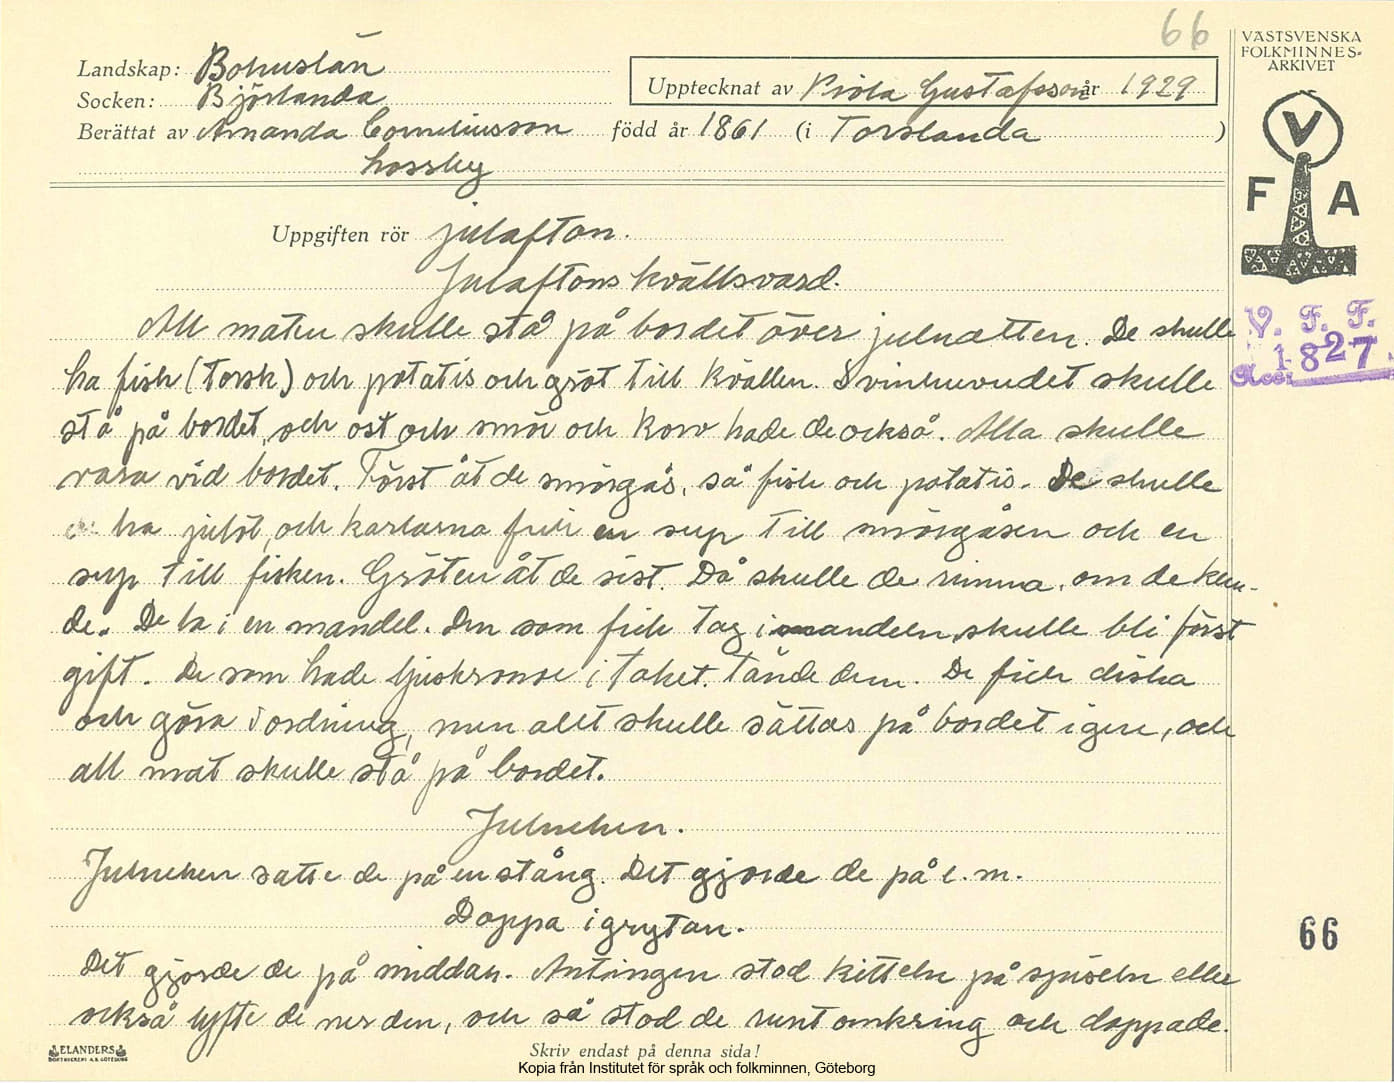 66
VÄSTSVENSKA
FOLKMINNES-
ARKIVET
Landskap: Bohuslän
Socken: Björlanda
Upptecknat av Viola Gustafsson år 1929
Berättat av Amanda Corneliusson född år 1861 (i Torslanda)
Lossby
V
F A
Uppgiften rör julafton.
Julaftons kvällsvard.
V. F. F.
Acc: 1827.
All maten skulle stå på bordet över julnatten. De skulle
ha fisk (torsk) och potatis och gröt till kvällen. Svinhuvudet skulle
stå på bordet, och ost och smör och korv hade de också. Alla skulle
vara vid bordet. Först åt de smörgås, så fisk och potatis. De skulle
ha julöl, och karlarna fick en sup till smörgåsen och en
sup till fisken. Gröten åt de sist. Då skulle de rimma, om de kun-
de. De la i en mandel. Den som fick tag i mandeln, skulle bli först
gift. De som hade ljuskronor i taket, tände dem. De fick diska
och göra i ordning, men allt skulle sättas på bordet igen, och
all mat skulle stå på bordet.
Juleneken.
Juleneken satte de på en stång. Det gjorde de på e.m.
Doppa i grytan.
66
Det gjorde de på middan. Antingen stod kitteln på spiseln eller
också lyfte de ner den, och så stod de runt omkring och doppade.
ELANDERS
BOKTRYCKERI A.B. GÖTEBORG
Skriv endast på denna sida!
Kopia från Institutet för språk och folkminnen, Göteborg